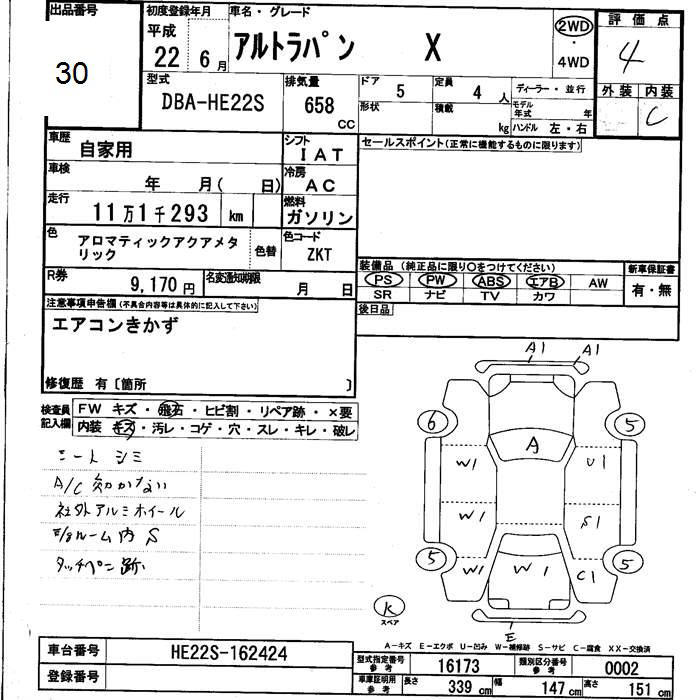 出品番号
30
初度登録年月
平成
22 6月
車名・グレード
アルトラパン X
2WD
・
4WD
評価点
4
外装 内装
C
型式
DBA-HE22S
排気量
658
cc
ドア 5
定員 4 人
形状
積載 kg
ディーラー・並行
モデル年式 年
ハンドル 左・右
車歴 自家用
シフト IAT
車検 年 月( 日)
冷房 AC
走行 11万1千293 km
燃料 ガソリン
色 アロマティックアクアメタ
リック
色替
色コード ZKT
R券 9,170円
名変通知期限 月 日
セールスポイント(正常に機能するものに限ります)
装備品 (純正品に限り○をつけてください)
PS PW ABS エアB AW
SR ナビ TV カワ
新車保証書
有・無
後日品
注意事項申告欄(不具合内容等は具体的に記入して下さい)
エアコンきかず
修復歴 有〔箇所 〕
検査員
記入欄
FW キズ・飛石・ヒビ割・リペア跡・×要
内装 キズ・汚レ・コゲ・穴・スレ・キレ・破レ
シート シミ
A/C 効かない
社外アルミホイール
E/gルーム内 S
タッチペン跡
A1 A1
6 5
A
W1 U1
W1 S1
5 5
W1 W1 C1
K
スペア
E
A-キズ E-エクボ U-凹み W-補修跡 S-サビ C-腐食 XX-交換済
車台番号 HE22S-162424
登録番号
型式指定番号
参考
16173
類別区分番号
参考
0002
車庫証明用
参考
長さ 339 cm
幅 147 cm
高さ 151 cm